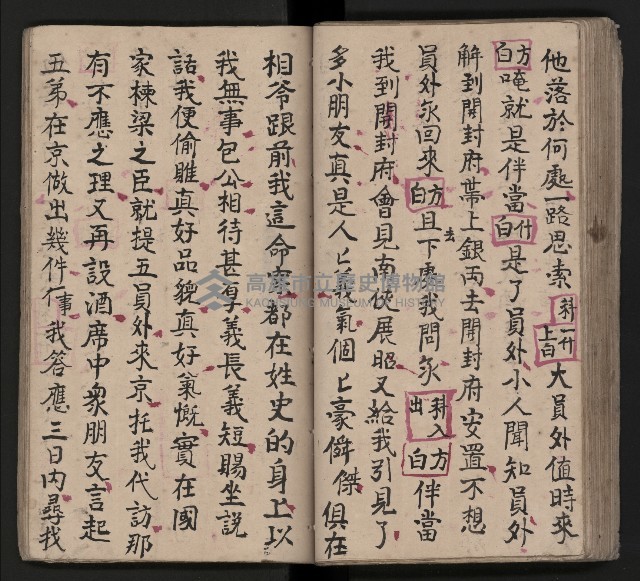 他落於何處一路思索 科一什上白 大員外值時來
方白 唵就是伴當 什白 是了員外小人聞知員外
解到開封府帶上銀両去開封府安置不想
員外永回來 方白 且下去處我問永 科入出 方白 伴當
我到開封府會見南俠展昭又給我引見了
多小朋友真是人匕義氣個匕豪僢傑俱在
相爷跟前我這命案都在姓史的身上以
我無事包公相待甚厚義長義短賜坐說
話我便偷睢真好品貌真好氣慨實在國
家棟梁之臣就提五員外來京托我代訪那
有不應之理又再設酒席中衆朋友言起
五弟在京做出幾件行事我答應三日內尋找
高雄市立歷史博物館
KAOHSIUNG MUSEUM OF HISTORY